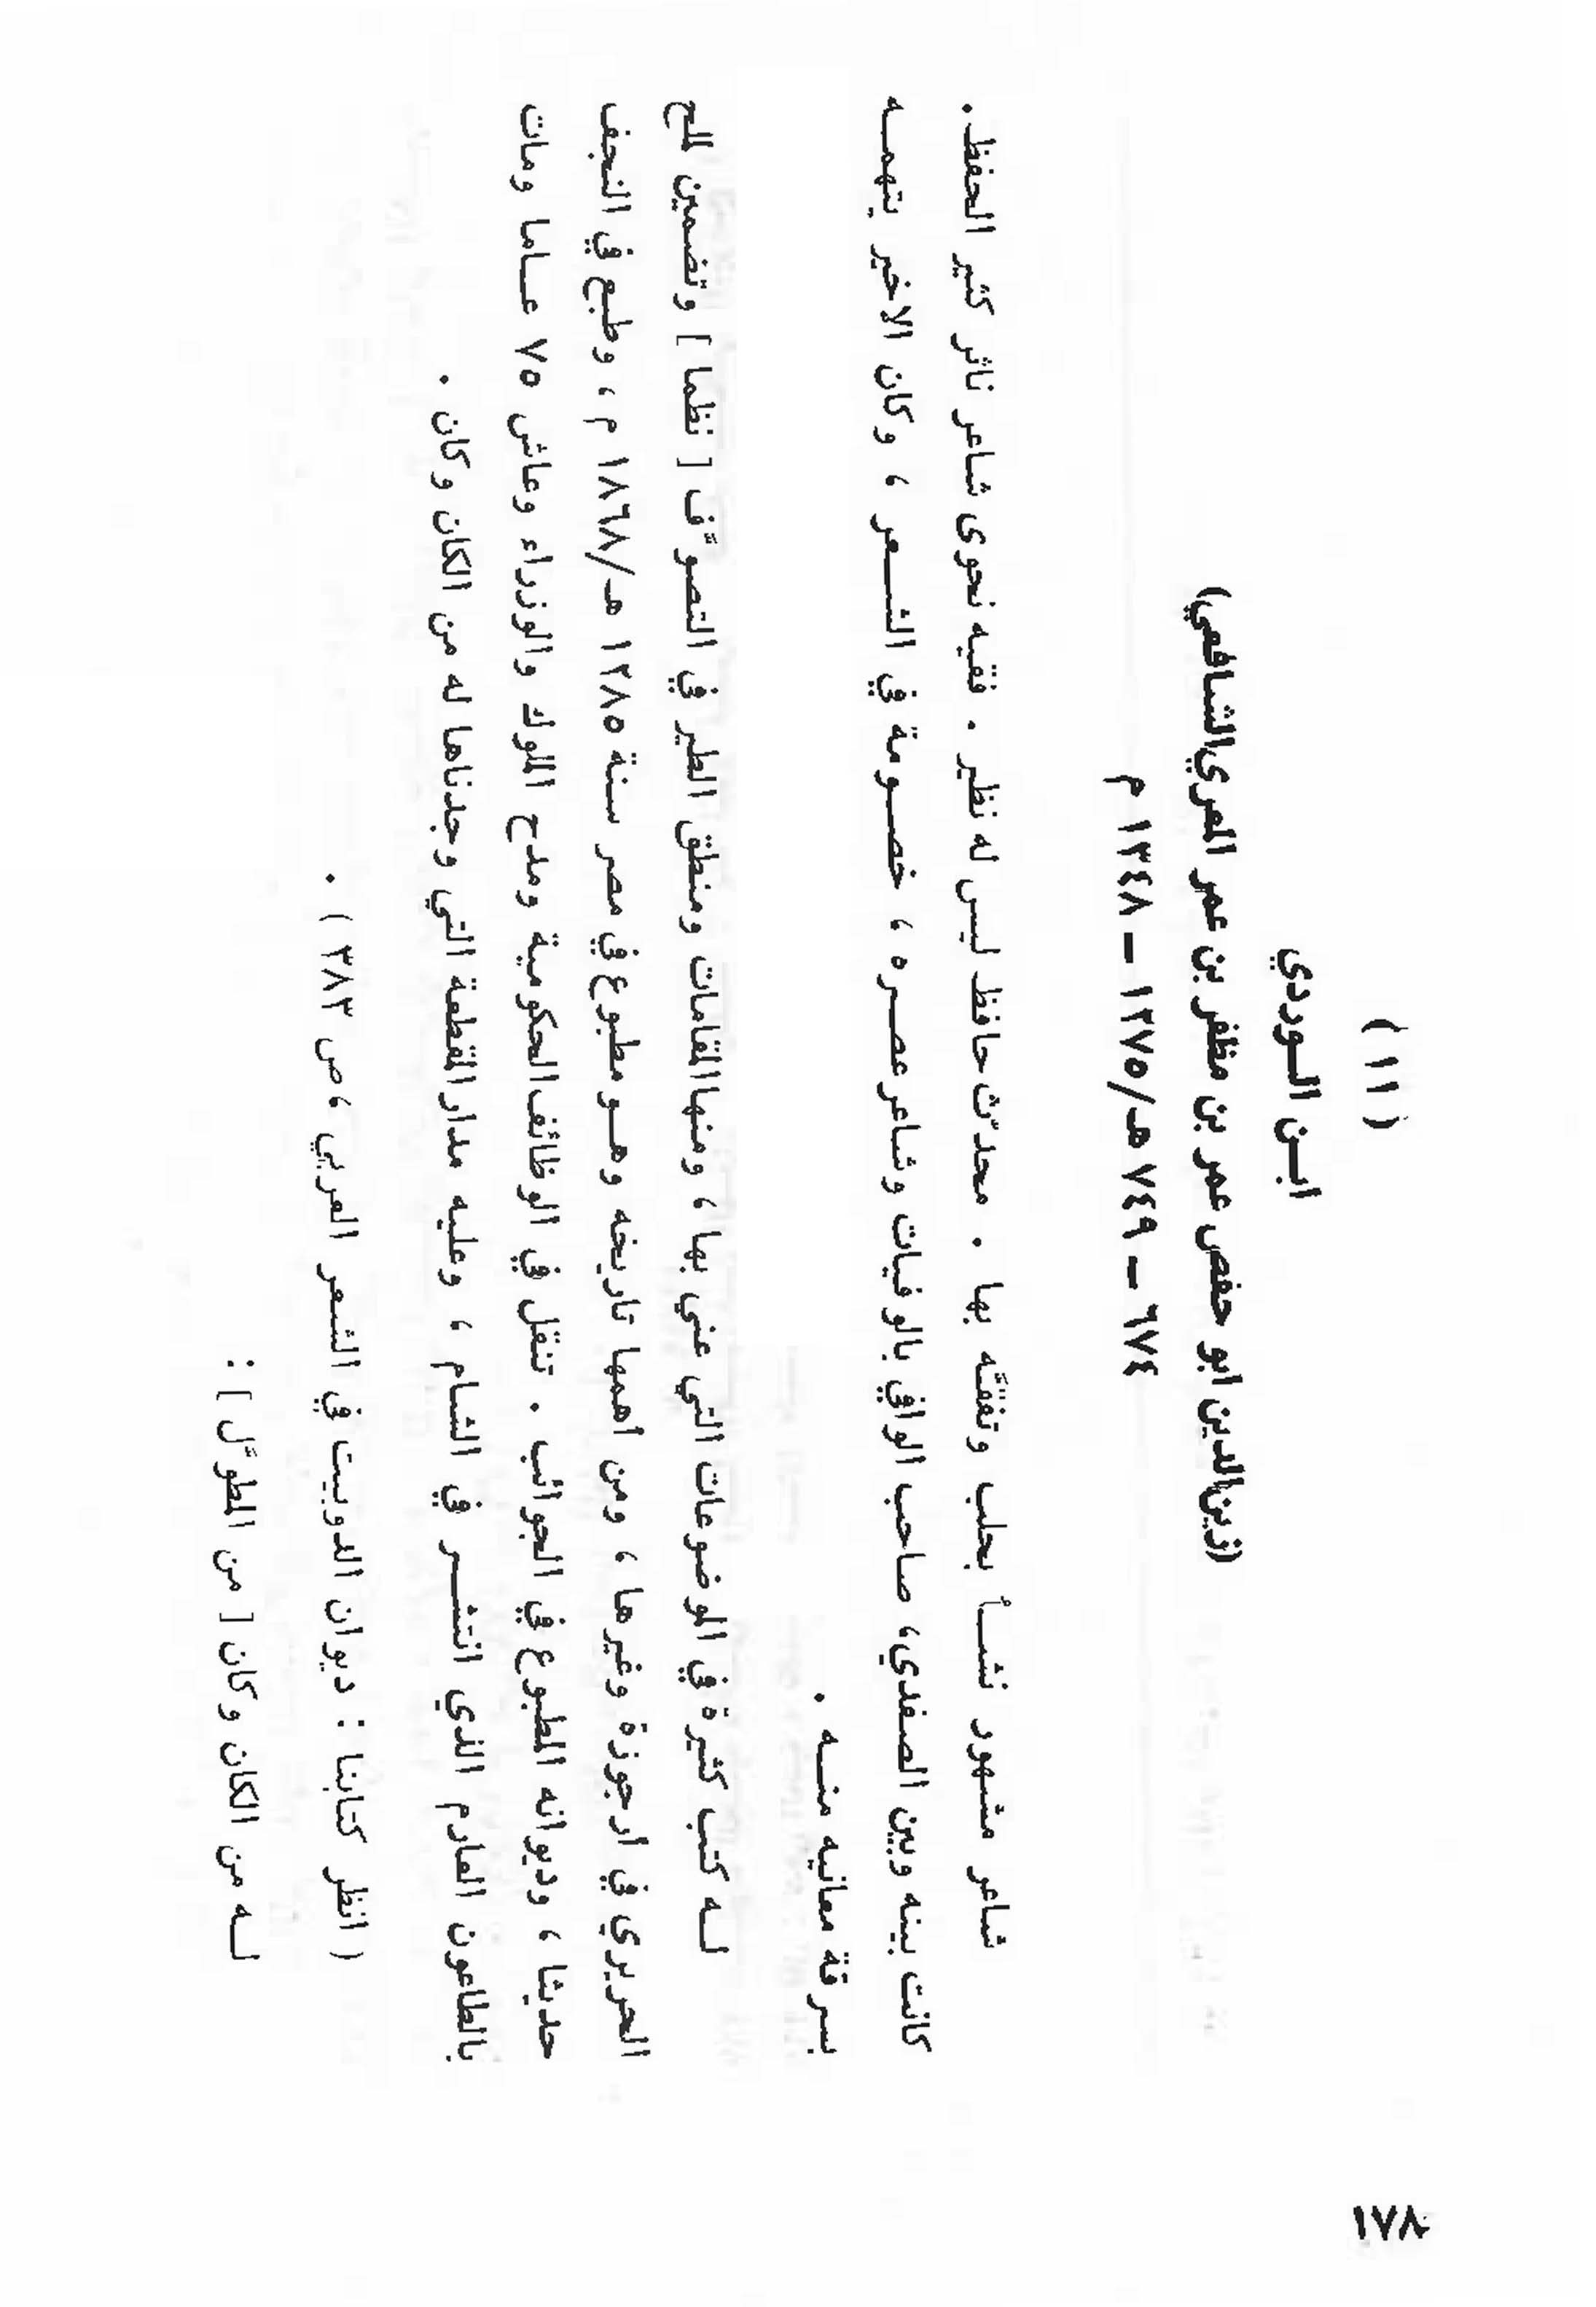 ( ١١ )
ابـن الـوردي
(زين الدين ابو حفص عمر بن مظفر بن عمر المعري الشافعي)
٦٧٤ – ٧٤٩ هـ/١٢٧٥ – ١٣٤٨ م
شاعر مشهور نشـأ بحلب وتفقَّه بها . محدّث حافظ ليس له نظير . فقيه نحوى شاعر ناثر كثير الحفظ .
كانت بينه وبين الصفدي ، صاحب الوافي بالوفيات وشاعر عصـره ، خصـومة في الشـعر ، وكان الاخير يتهمـه
بسرقة معانيه منـه .
لـه كتب كثيرة في الموضوعات التي عني بها ، ومنها المقامات ومنطق الطير في التصوّف [ نظما ] وتضمين لملح
الحريري في ارجوزة وغيرها ، ومن اهمها تاريخه وهـو مطبوع في مصر سنة ١٢٨٥ هـ/١٨٦٨ م ، وطبع في النجف
حديثا ، وديوانه المطبوع في الجوائب . تنقل في الوظائف الحكومية ومدح الملوك والوزراء وعاش ٧٥ عـاما ومات
بالطاعون العارم الذي انتشـر في الشام ، وعليه مدار المقطعة التي وجدناها له من الكان وكان .
( انظر كتابنا : ديوان الدوبيت في الشعر العربي ، ص ٣٨٣ ) .
لـه من الكان وكان [ من المطوَّل ] :
١٧٨